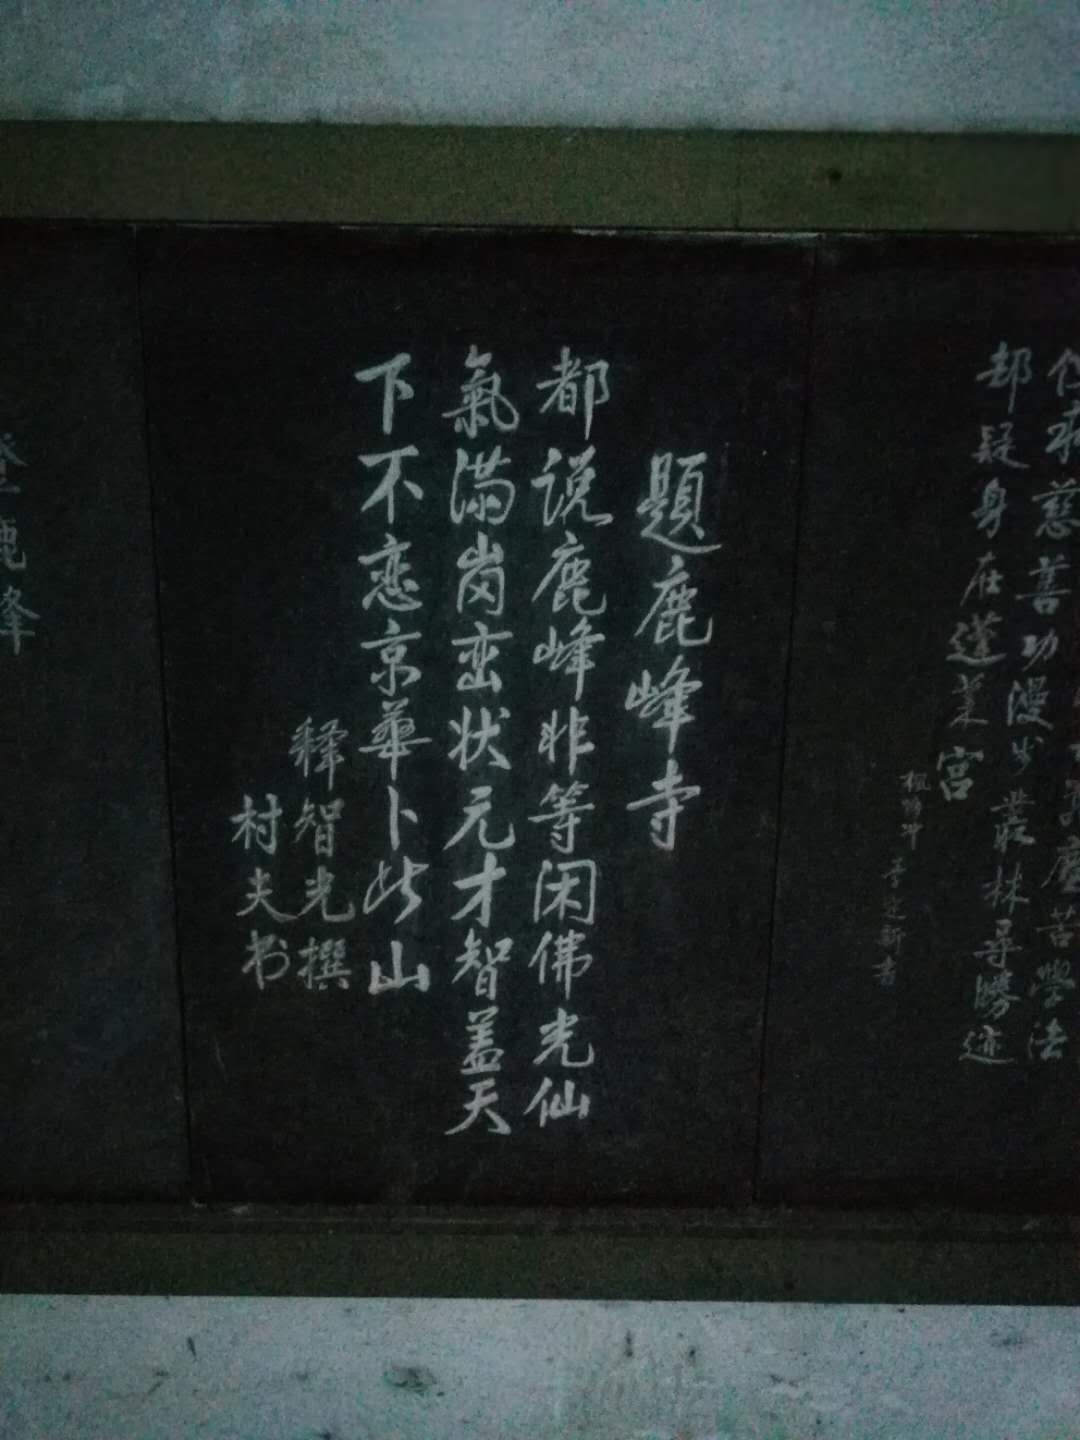 慈善功漫步叢林尋勝迹
却疑身在蓬莱宫
新書
題鹿峰寺
都说鹿峰非等闲佛光仙
氣满岗峦状元才智盖天
下不恋京華卜此山
释智光撰
村夫书
登鹿峰